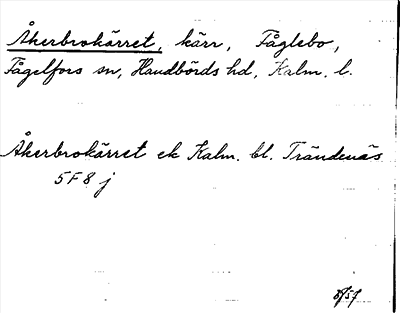 Åkerbrokärret, kärr, Fåglebo,
Fågelfors sn, Handbörds hd, Kalm. l.
Åkerbrokärret ek Kalm. bl. Trändenäs
5F8j